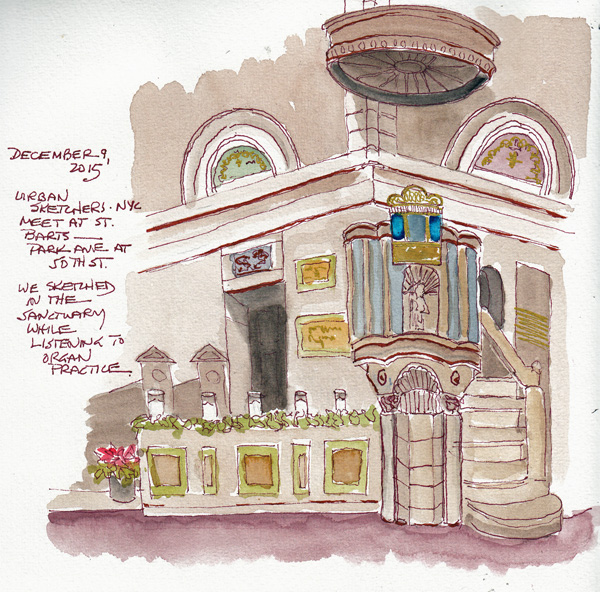 DECEMBER 9,
2015
URBAN
SKETCHERS · NYC
MEET AT ST.
BARTS —
PARK AVE AT
50TH ST.
WE SKETCHED
IN THE
SANCTUARY
WHILE
LISTENING TO
ORGAN
PRACTICE